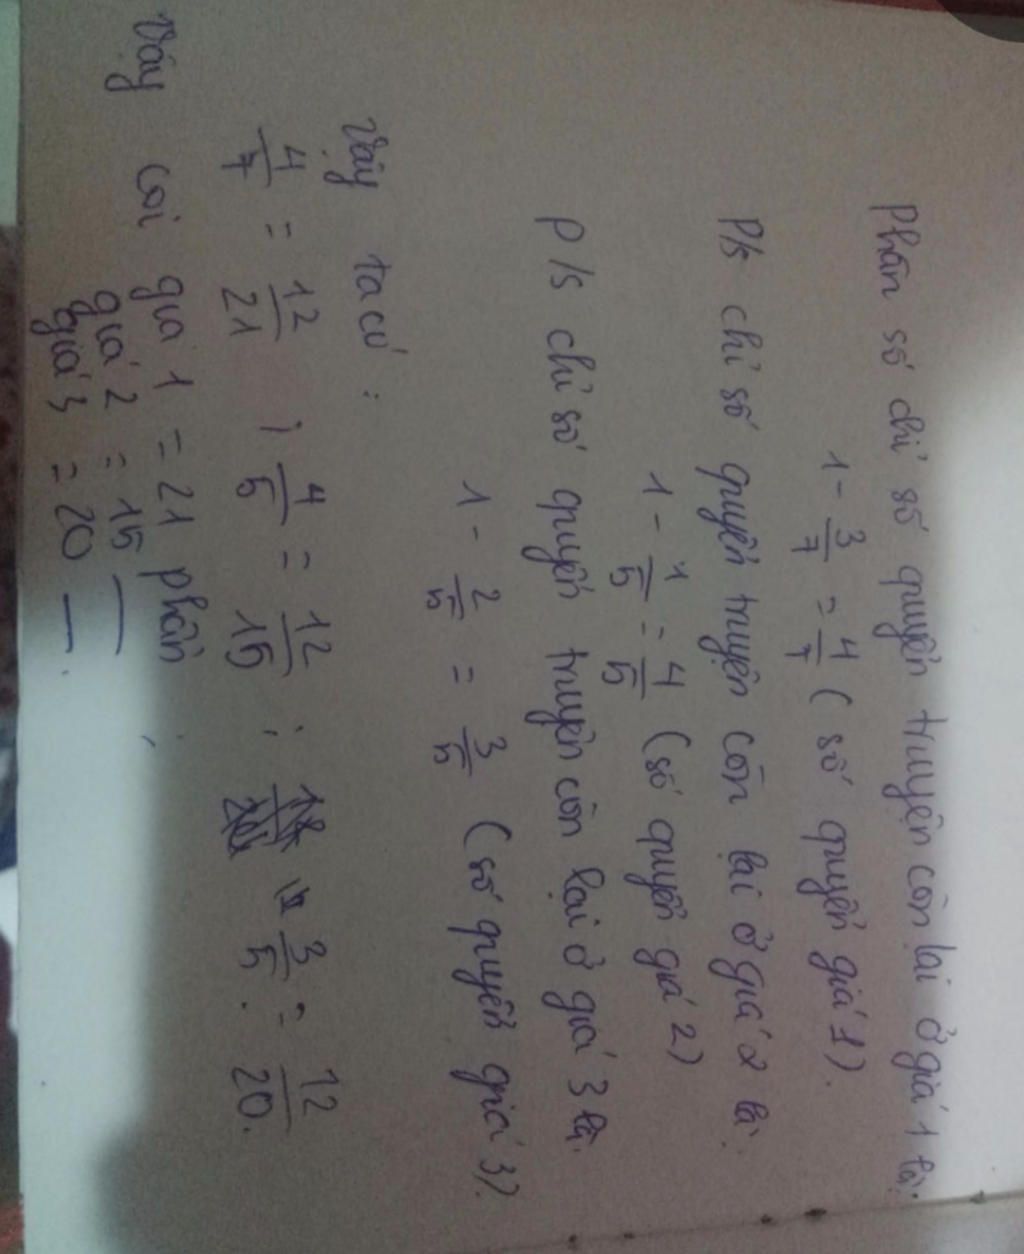 Phân số chỉ số quyển truyện còn lại ở giá 1 là:
1 - 3/7 = 4/7 (số quyển giá 1).
P/s chỉ số quyển truyện còn lại ở giá 2 là:
1 - 1/5 = 4/5 (số quyển giá 2)
P/s chỉ số quyển truyện còn lại ở giá 3 là.
1 - 2/5 = 3/5 (số quyển giá 3).
Vậy ta có:
4/7 = 12/21 ; 4/5 = 12/15 ; 3/5 = 12/20.
Vậy coi giá 1 = 21 phần;
giá 2 = 15 —
giá 3 = 20 —.